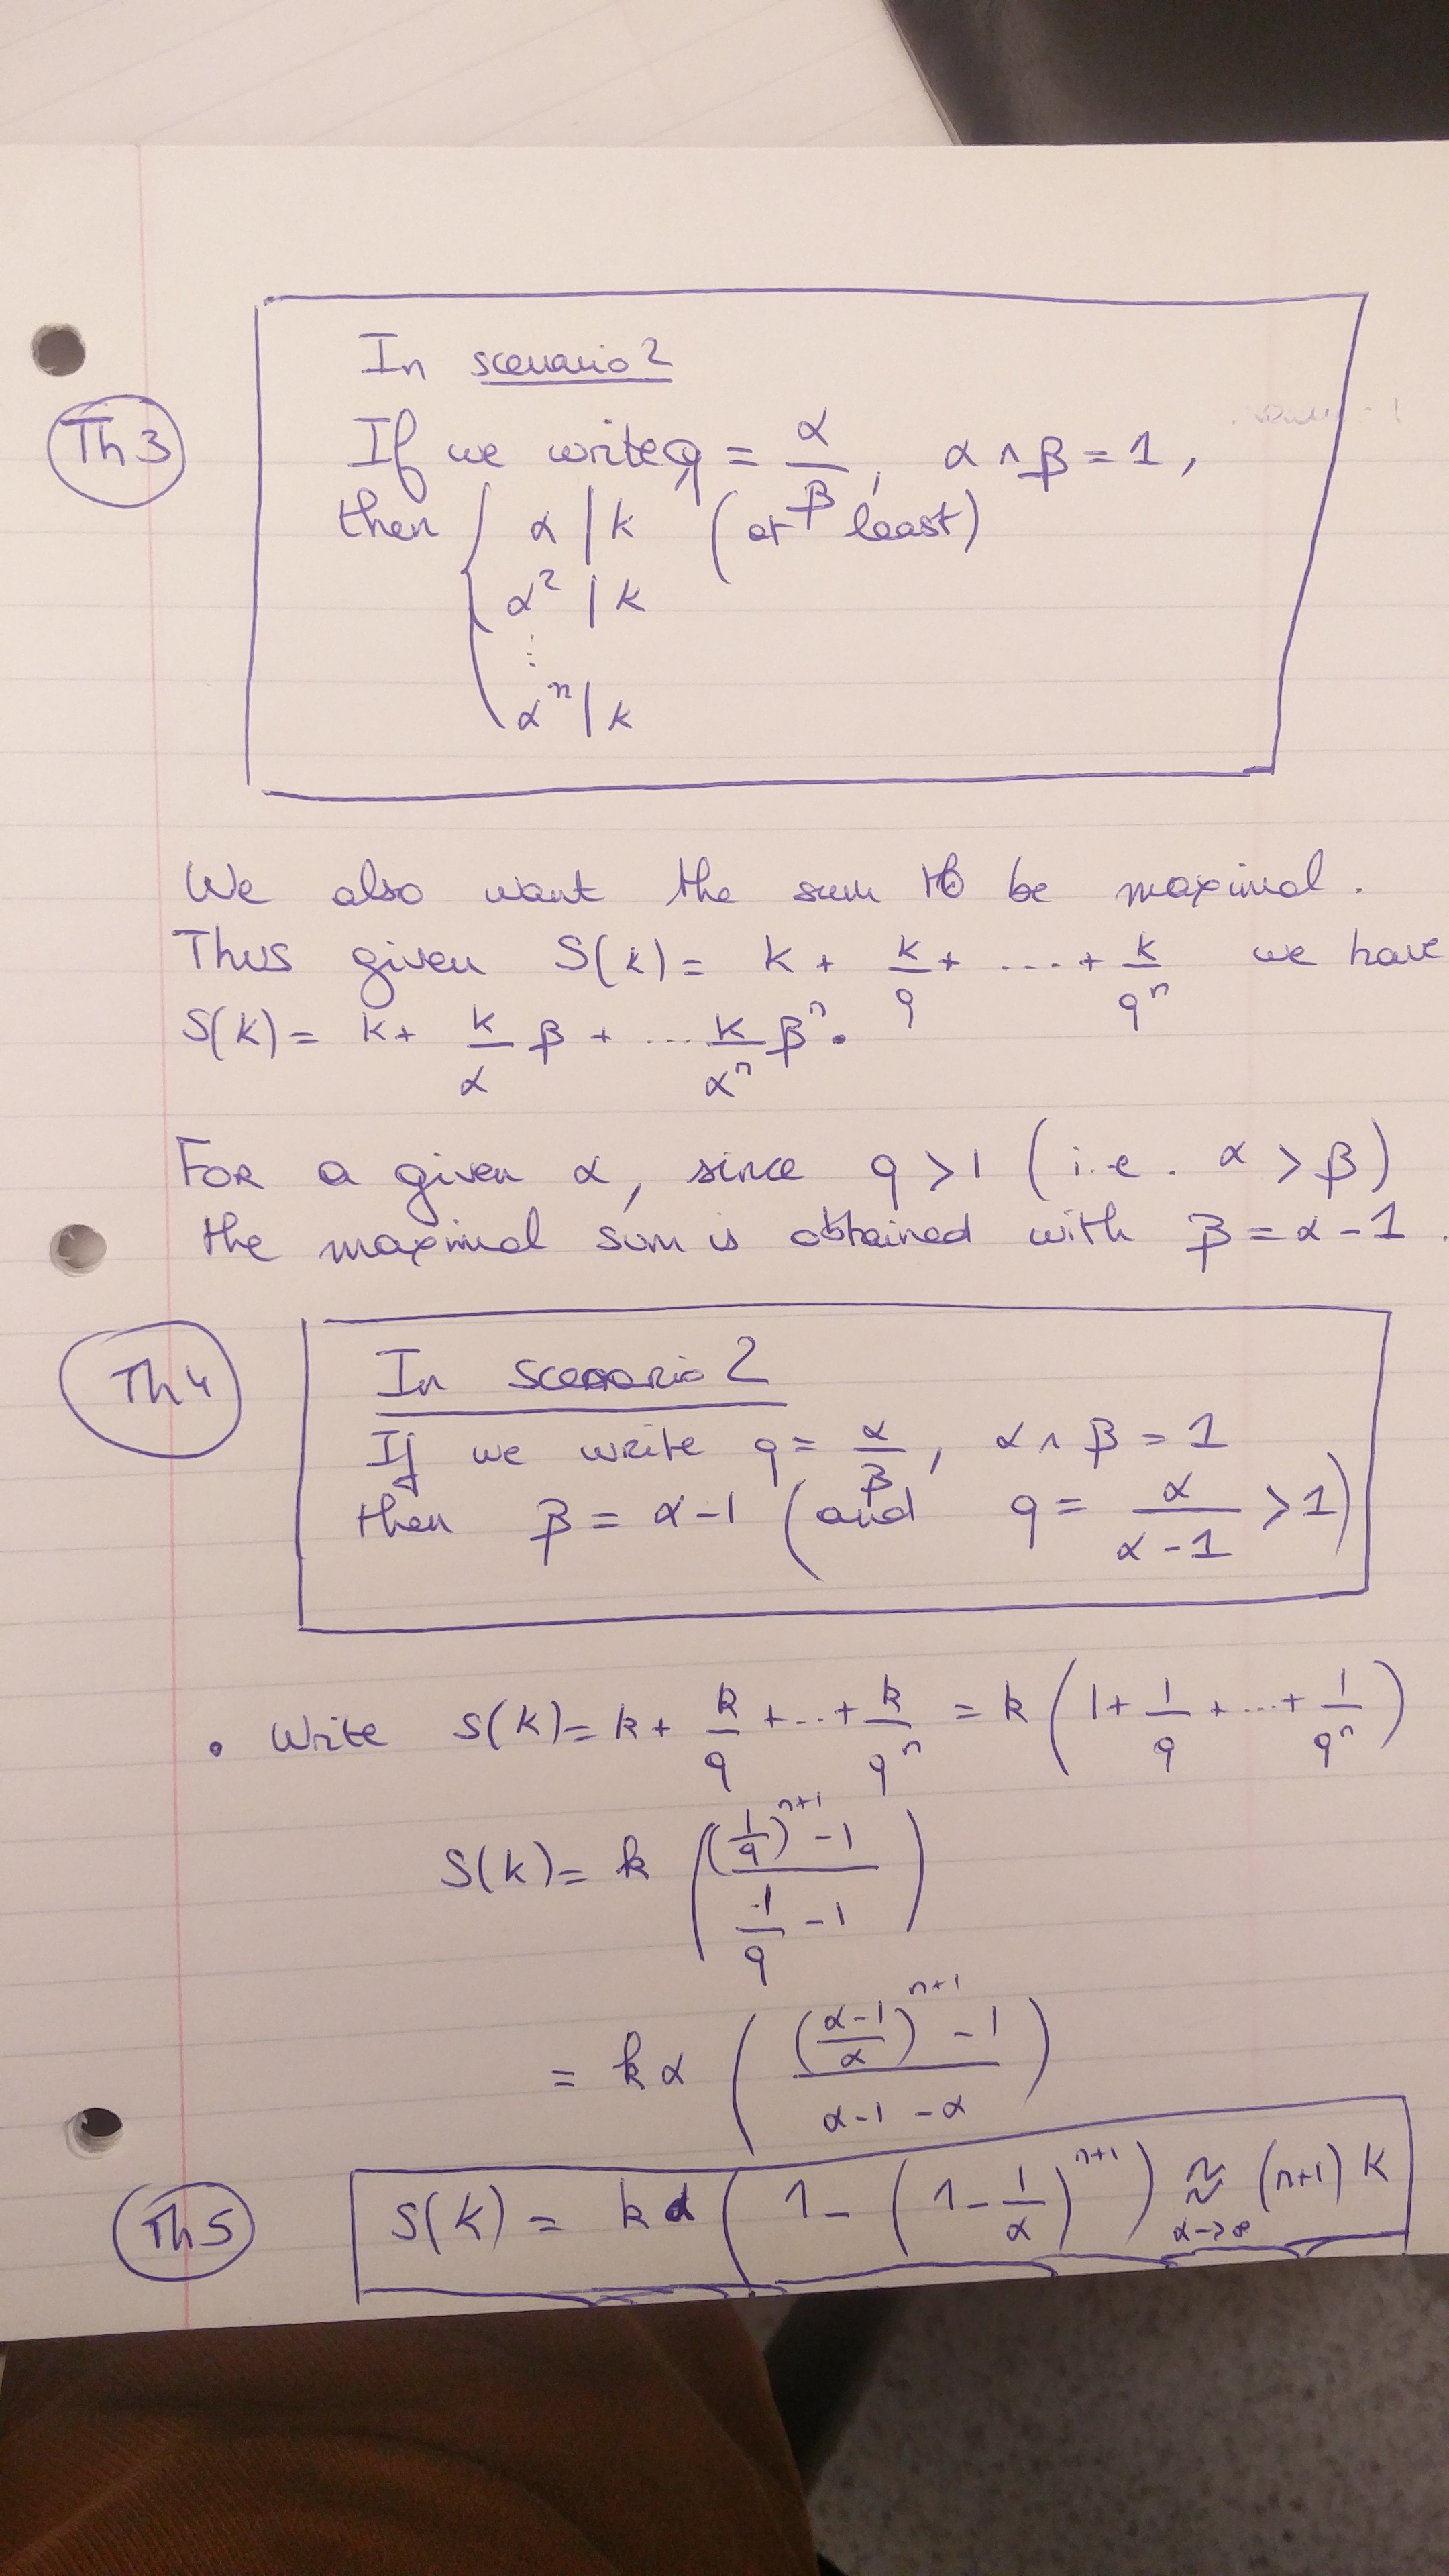 In scenario 2
Th 3
If we write q = α/β, α ∧ β = 1,
then { α | k (at least)
α² | k
⋮
αⁿ | k
We also want the sum to be maximal.
Thus given S(k) = k + k/q + .... + k/qⁿ we have
S(k) = k + k/α β + ... k/αⁿ βⁿ.
For a given α, since q > 1 (i.e. α > β)
the maximal sum is obtained with β = α - 1.
In scenario 2
Th 4
If we write q = α/β, α ∧ β = 1
then β = α - 1 (and q = α/(α - 1) > 1)
• Write S(k) = k + k/q + ... + k/qⁿ = k (1 + 1/q + ... + 1/qⁿ)
S(k) = k (((1/q)ⁿ⁺¹ - 1)/(1/q - 1))
= kα ((((α-1)/α)ⁿ⁺¹ - 1)/(α-1-α))
Th 5
S(k) = kα (1 - (1 - 1/α)ⁿ⁺¹) ≈ α→∞ (n+1) k